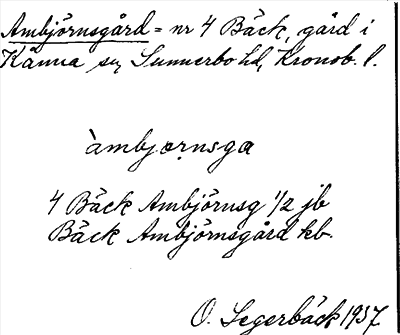 Ambjörnsgård = nr 4 Bäck, gård i
Kånna sn, Sunnerbo hd, Kronob. l.
àmbjœrnsga
4 Bäck Ambjörnsg 1/2 jb
Bäck Ambjörnsgård kb.
O. Segerbäck 1937